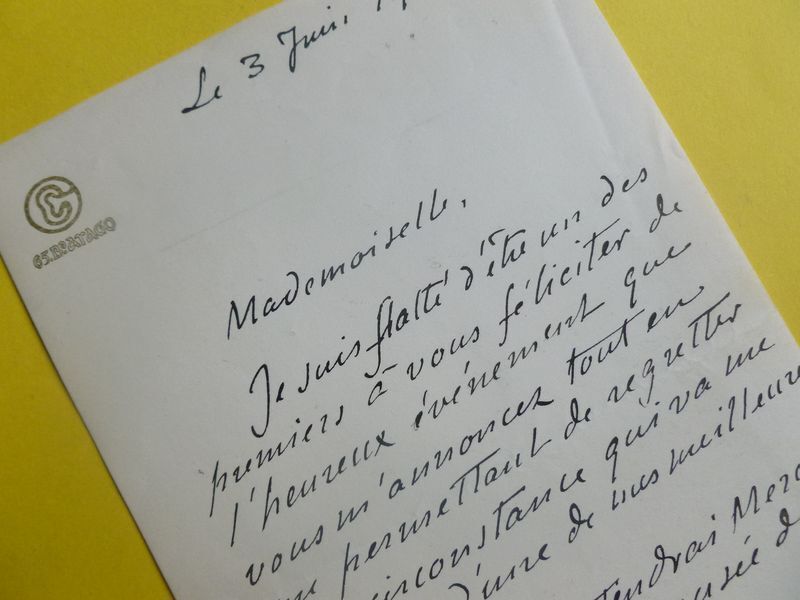 Le 3 Juin
65, Bd RASPAIL
Mademoiselle,
Je suis flatté d'être un des
premiers à vous féliciter de
l'heureux événement que
vous m'annoncez tout en
permettant de regretter
circonstance qui va me
d'une de vos meilleure
tendrai Merc